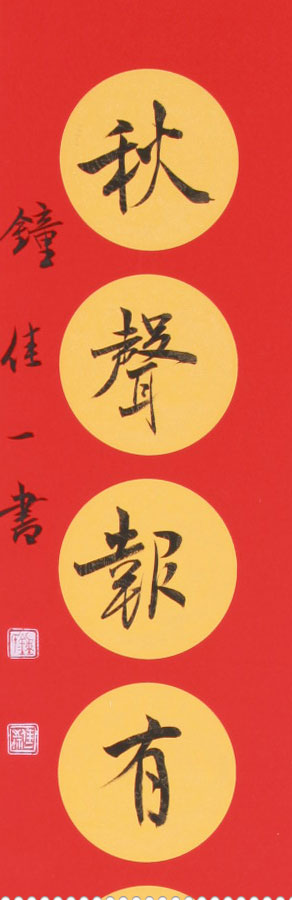 秋聲報有
鐘佳一書